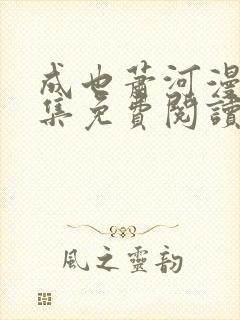 成也蕭河漫
集免費閱讀
風之靈韵